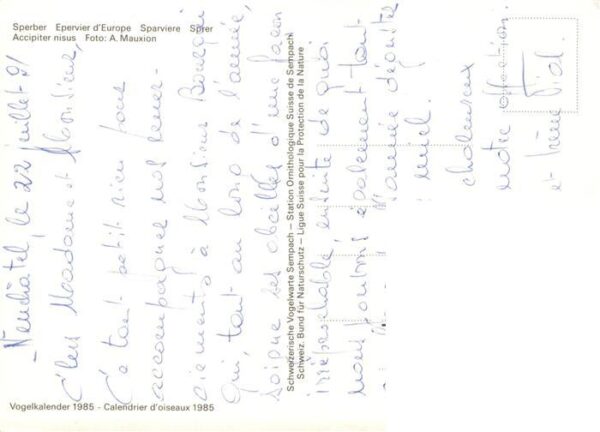 Sperber Epervier d'Europe Sparviere Sprer
Accipiter nisus Foto: A. Mauxion
Neuchâtel, le 22 juillet 91
Chers Madame et Monsieur,
Ce tout petit rien pour
accompagner nos remer-
ciements à Monsieur Bourqui
qui, tout au long de l'année,
soigne ses abeilles d'une façon
irréprochable, ensuite de quoi
nous pouvons également tout
l'année
miel.
chaleureux
notre affection.
et
Schweizerische Vogelwarte Sempach – Station Ornithologique Suisse de Sempach
Schweiz. Bund für Naturschutz – Ligue Suisse pour la Protection de la Nature
Vogelkalender 1985 - Calendrier d'oiseaux 1985